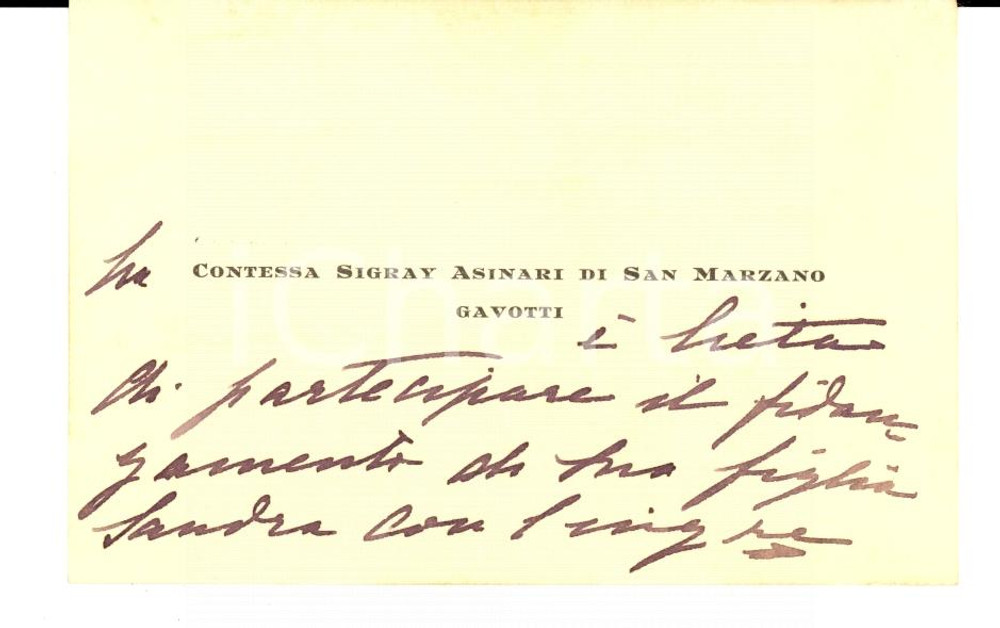 La CONTESSA SIGRAY ASINARI DI SAN MARZANO
GAVOTTI
è lieta
di partecipare il fidan-
zamento di sua figlia
Sandra con l'ing re
iCharta